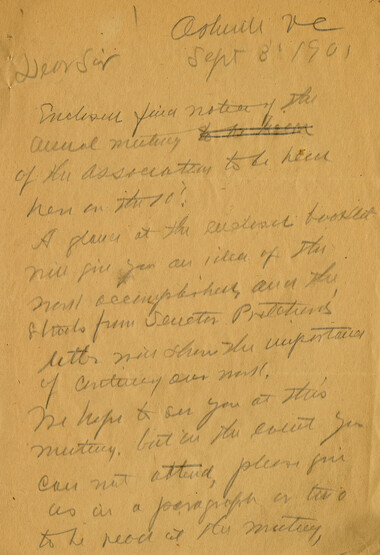 Asheville NC
Sept 3' 1901
Dear Sir
Enclosed find notice of the
annual meeting to be held
of the Association to be held
here on the 10'!
A glance at the enclosed booklet
will give you an idea of the
work accomplished, and the
from Senator Pritchard's
letter will show the importance
of continuing our work.
We hope to see you at this
meeting. but in the event you
can not attend, please give
us in a paragraph or two
to be read at the meeting,